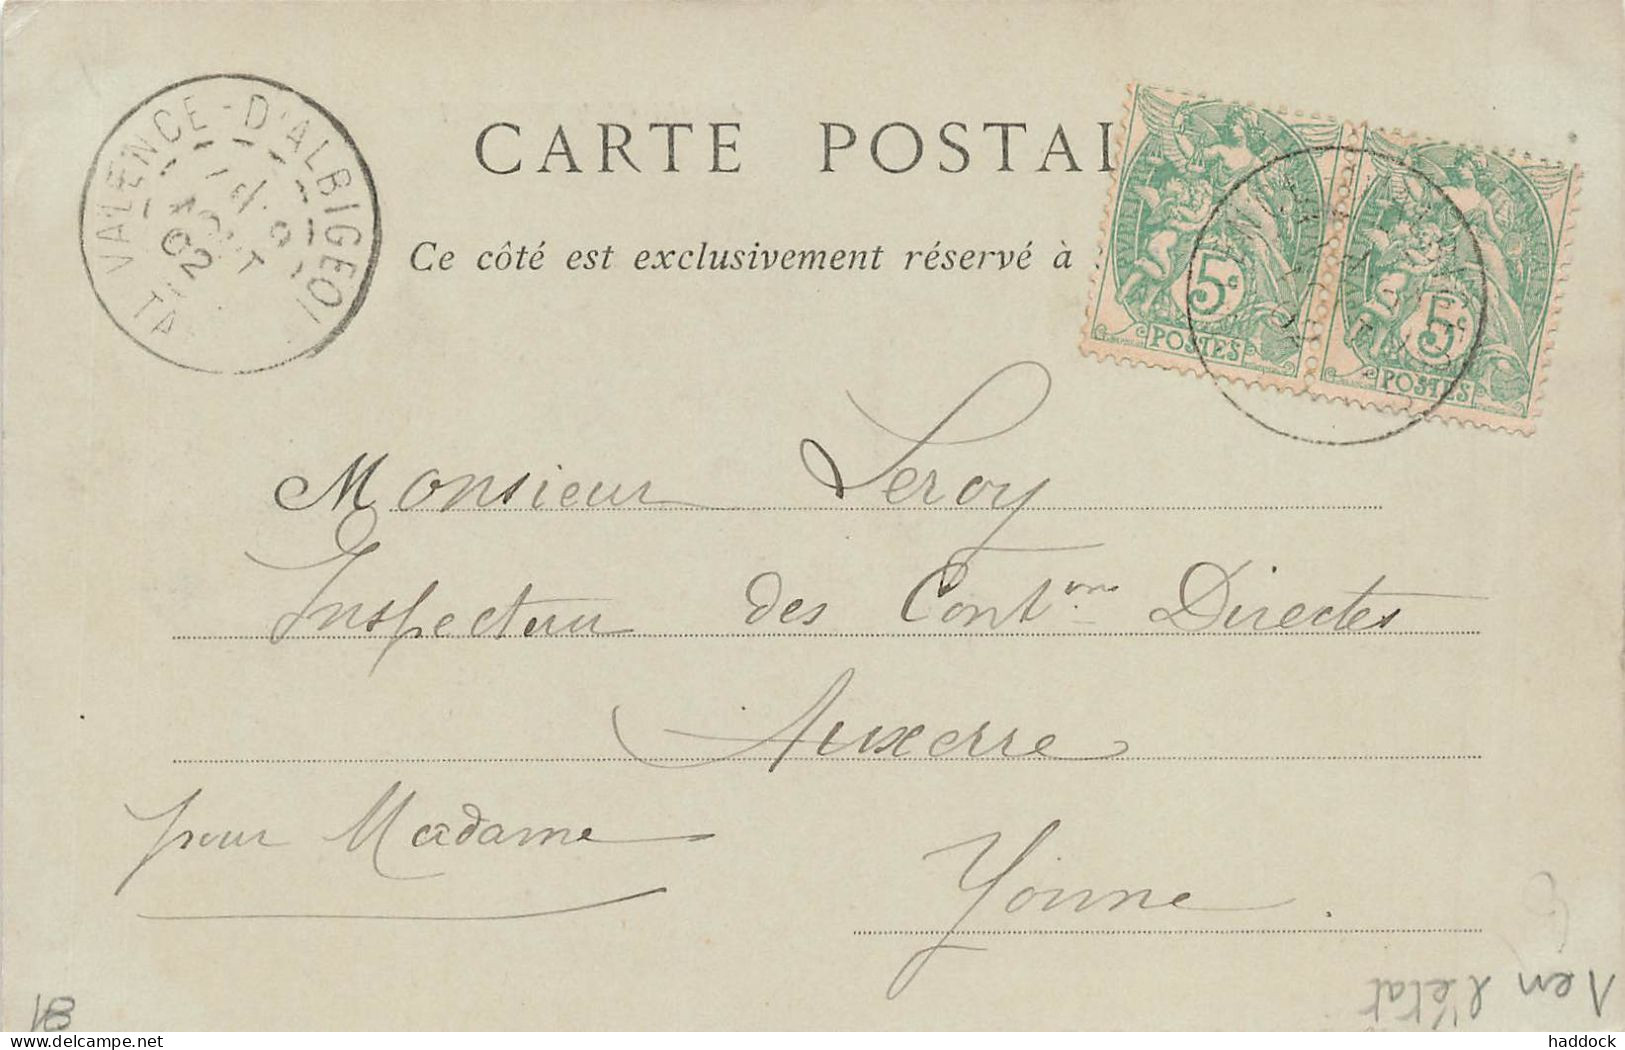 CARTE POSTAL
Ce côté est exclusivement réservé à
VALENCE-D'ALBIGEOI
TA
AOUT
02
5c
POSTES
5c
POSTES
Monsieur Leroy
Inspecteur des Contions Directes
Auxerre
pour Madame
Yonne.
81
1 en l'état
delcampe.net
haddock